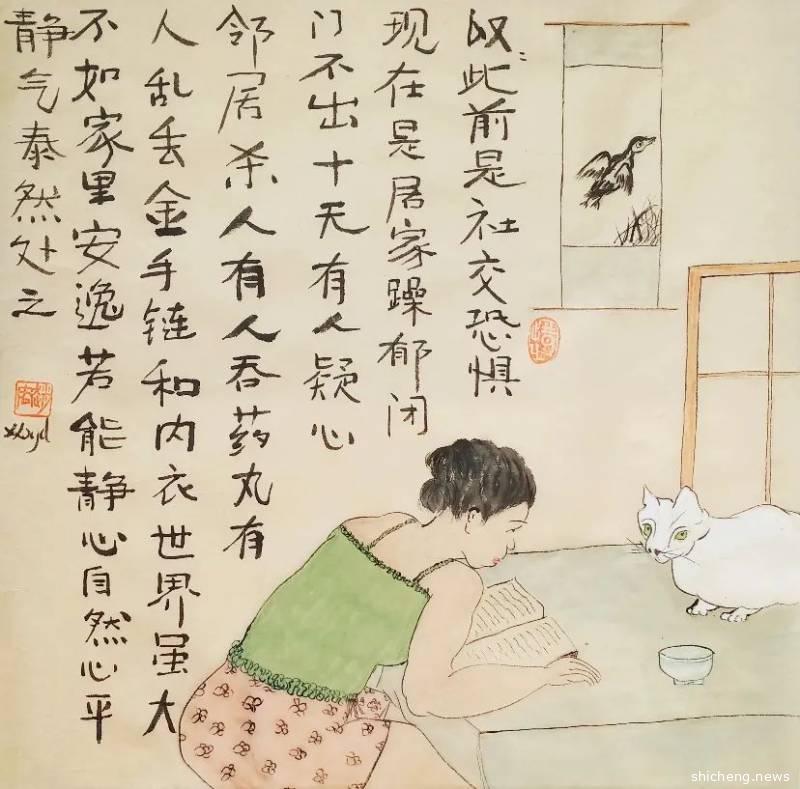 此前是社交恐惧
现在是居家躁郁闭
门不出十天有人疑心
邻居杀人有人吞药丸有
人乱丢金手链和内衣世界虽大
不如家里安逸若能静心自然心平
静气泰然处之
shicheng.news